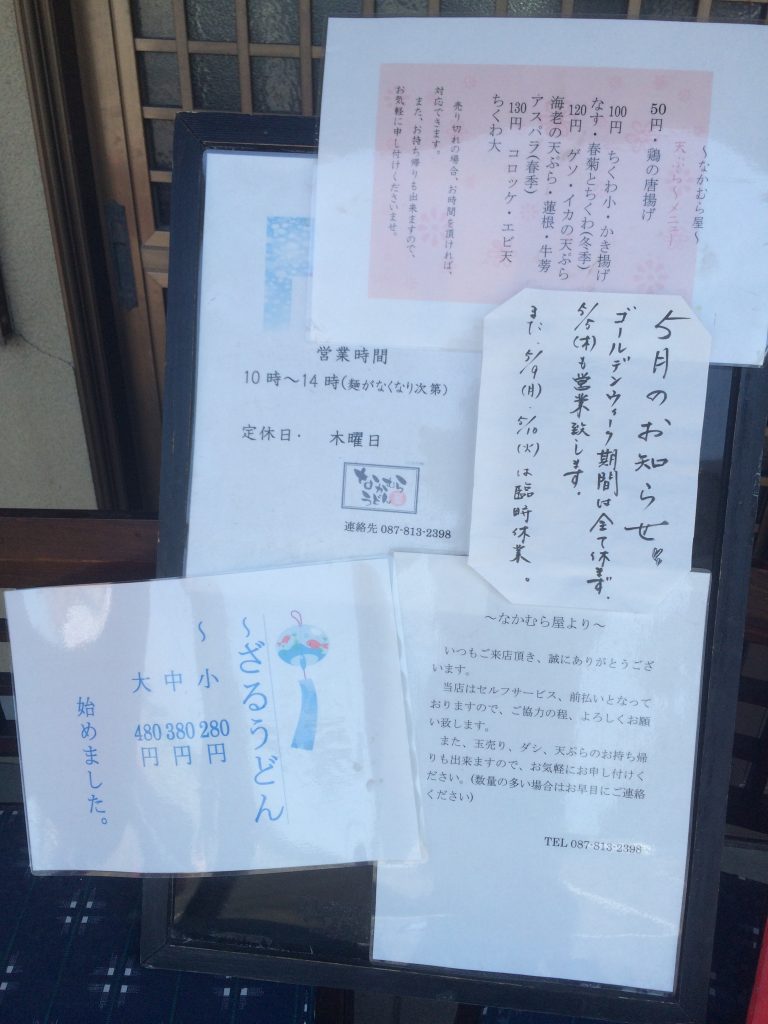 ～なかむら屋～
天ぷら～メニュー
50円・鶏の唐揚げ
100円　ちくわ小・かき揚げ
なす・春菊とちくわ(冬季)
120円　ゲソ・イカの天ぷら
海老の天ぷら・蓮根・牛蒡
アスパラ(春季)
130円　コロッケ・エビ天
ちくわ大
売り切れの場合、お時間を頂ければ、
対応できます。
また、お持ち帰りも出来ますので、
お気軽に申し付けくださいませ。
営業時間
10時～14時(麺がなくなり次第)
定休日・　木曜日
なかむら
うどん
連絡先 087-813-2398
5月のお知らせ
ゴールデンウィーク期間は全て休まず、
5/5(木)も営業致します。
また、5/9(月)、5/10(火)は臨時休業。
～ざるうどん
～
小 280円
中 380円
大 480円
始めました。
～なかむら屋より～
いつもご来店頂き、誠にありがとうござ
います。
当店はセルフサービス、前払いとなって
おりますので、ご協力の程、よろしくお願
い致します。
また、玉売り、ダシ、天ぷらのお持ち帰
りも出来ますので、お気軽にお申し付けく
ださい。(数量の多い場合はお早目にご連絡
ください)
TEL 087-813-2398